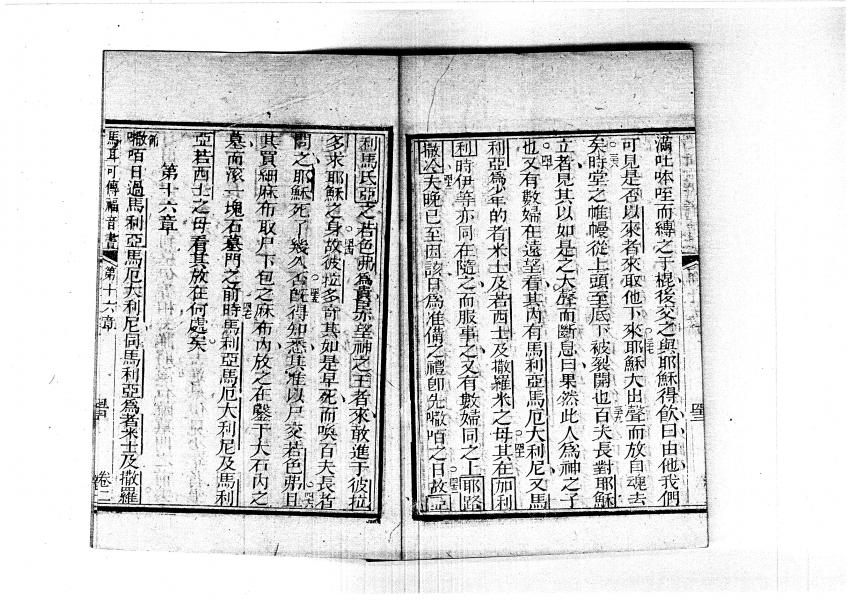 滿吐咻咥而縛之于棍後交之與耶穌得飲曰由他我們
可見是否以來者來取他下來耶穌大出聲而放自魂去
矣時堂之帷幔從上頭至底下被裂開也百夫長對耶穌
立者見其以如是之大聲而斷息曰果然此人為神之子
也又有數婦在遠望看其內有馬利亞馬厄大利尼又馬
利亞為少年的者米士及若西士及撒羅米之母其在加利
利時伊等亦同在隨之而服事之又有數婦同之上耶路
撒冷夫晚已至因該日為准備之禮即先嘞唒之日故
利馬氏亞之若色弗為貴尊望神之王者來敢進于彼拉
多求耶穌之身故彼拉多奇其如是早死而喚百夫長者
問之耶穌死了幾久否既得知悉其准以尸交若色弗且
其買細麻布取尸下包之麻布內放之在鑿于大石內之
墓而滾一塊石墓門之前時馬利亞馬厄大利尼及馬利
亞若西士之母看其放在何處矣
第十六章
嘞唒日過馬利亞馬厄大利尼同馬利亞為者米士及撒羅
馬耳可傳福音書 第十六章 卷二